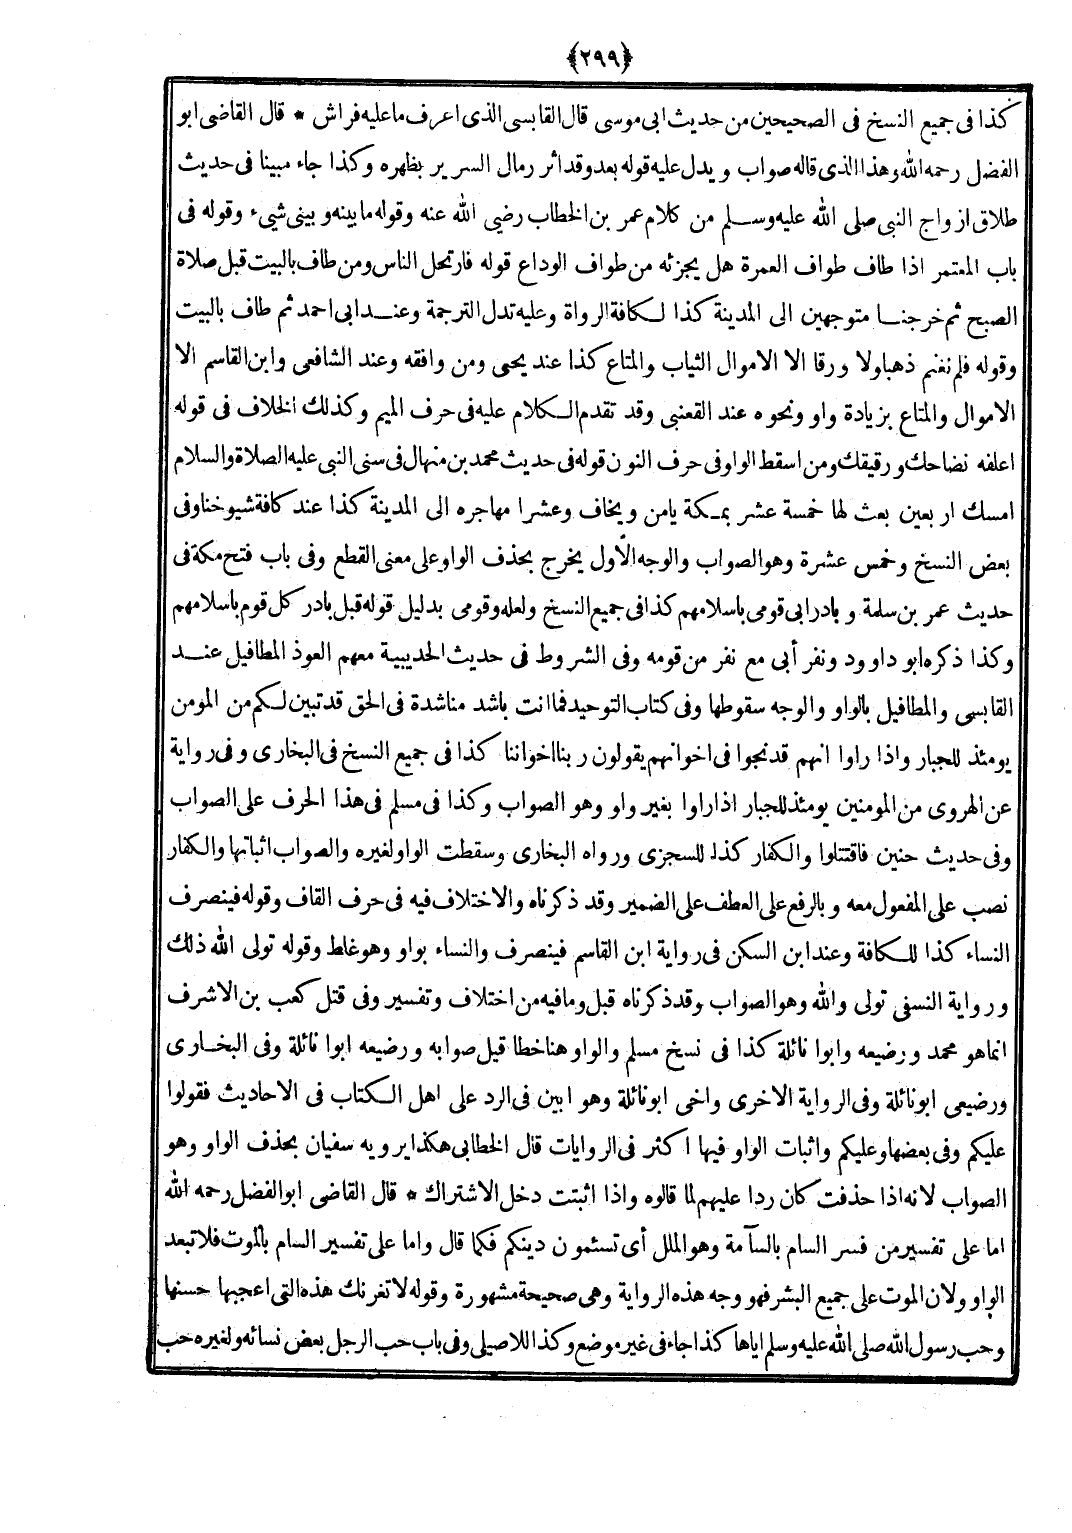 ﴿٢٩٩﴾
كذا فى جميع النسخ فى الصحيحين من حديث ابى موسى قال القابسى الذى اعرف ما عليه فراش * قال القاضى ابو
الفضل رحمه الله وهذا الذى قاله صواب و يدل عليه قوله بعد وقد اثر رمال السرير بظهره وكذا جاء مبينا فى حديث
طلاق ازواج النبى صلى الله عليه وسلم من كلام عمر بن الخطاب رضي الله عنه وقوله ما بينه و بينى شيء وقوله فى
باب المعتمر اذا طاف طواف العمرة هل يجزئه من طواف الوداع قوله فارتحل الناس ومن طاف بالبيت قبل صلاة
الصبح ثم خرجنا متوجهين الى المدينة كذا لكافة الرواة وعليه تدل الترجمة وعند ابى احمد ثم طاف بالبيت
وقوله فلم نغنم ذهبا ولا ورقا الا الاموال الثياب والمتاع كذا عند يحيى ومن وافقه وعند الشافعى وابن القاسم الا
الاموال والمتاع بزيادة واو ونحوه عند القعنبى وقد تقدم الكلام عليه فى حرف الميم وكذلك الخلاف فى قوله
اعلفه نضاحك ورقيقك ومن اسقط الواو فى حرف النون قوله فى حديث محمد بن منهال فى سنى النبى عليه الصلاة والسلام
امسك اربعين بعث لها خمسة عشر بمكة يامن ويخاف وعشرا مهاجره الى المدينة كذا عند كافة شيوخنا وفى
بعض النسخ وخمس عشرة وهو الصواب والوجه الأول يخرج بحذف الواو على معنى القطع وفى باب فتح مكة فى
حديث عمر بن سلمة و بادر ابى قومى باسلامهم كذا فى جميع النسخ ولعله وقومى بدليل قوله قبل بادر كل قوم باسلامهم
وكذا ذكره ابو داوود ونفر أبي مع نفر من قومه وفى الشروط فى حديث الحديبية معهم العوذ المطافيل عند
القابسى والمطافيل بالواو والوجه سقوطها وفى كتاب التوحيد فما انت باشد مناشدة فى الحق قد تبين لكم من المومن
يومئذ للجبار واذا راوا انهم قد نجوا فى اخوانهم يقولون ربنا اخواننا كذا فى جميع النسخ فى البخارى وفى رواية
عن الهروى من المومنين يومئذ للجبار اذا راوا بغير واو وهو الصواب وكذا فى مسلم فى هذا الحرف على الصواب
وفى حديث حنين فاقتتلوا والكفار كذا للسجزى ورواه البخارى وسقطت الواو لغيره والصواب اثباتها والكفار
نصب على المفعول معه و بالرفع على العطف على الضمير وقد ذكرناه والاختلاف فيه فى حرف القاف وقوله فينصرف
النساء كذا للكافة وعند ابن السكن فى رواية ابن القاسم فينصرف والنساء بواو وهو غلط وقوله تولى الله ذلك
ورواية النسفى تولى والله وهو الصواب وقد ذكرناه قبل وما فيه من اختلاف وتفسير وفى قتل كعب بن الاشرف
انما هو محمد ورضيعه وابوا نائلة كذا فى نسخ مسلم والواو هنا خطا قيل صوابه ورضيعه ابوا نائلة وفى البخارى
ورضيعى ابو نائلة وفى الرواية الاخرى واخى ابو نائلة وهو ابين فى الرد على اهل الكتاب فى الاحاديث فقولوا
عليكم وفى بعضها وعليكم واثبات الواو فيها اكثر فى الروايات قال الخطابى هكذا يرويه سفيان بحذف الواو وهو
الصواب لانه اذا حذفت كان ردا عليهم لما قالوه واذا اثبتت دخل الاشتراك * قال القاضى ابو الفضل رحمه الله
اما على تفسير من فسر السام بالسآمة وهو الملل أى تسئمون دينكم فكما قال واما على تفسير السام بالموت فلا تبعد
الواو ولان الموت على جميع البشر فهو وجه هذه الرواية وهى صحيحة مشهورة وقوله لا تغرنك هذه التى اعجبها حسنها
وحب رسول الله صلى الله عليه وسلم اياها كذا جاء فى غير موضع وكذا للاصيلى وفى باب حب الرجل بعض نسائه ولغيره حب